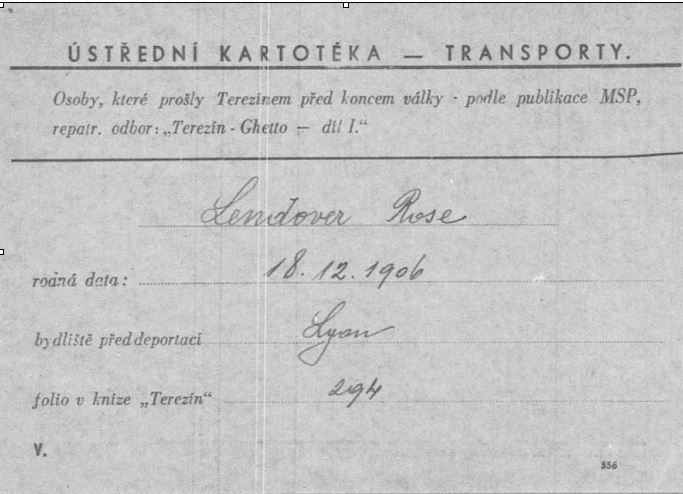 ÚSTŘEDNÍ KARTOTÉKA — TRANSPORTY.
Osoby, které prošly Terezínem před koncem války - podle publikace MSP,
repatr. odbor: „Terezín - Ghetto — díl I.“
Lendover Rose
rodná data: 18.12.1906
bydliště před deportací Lyon
folio v knize „Terezín“ 294
V.
356